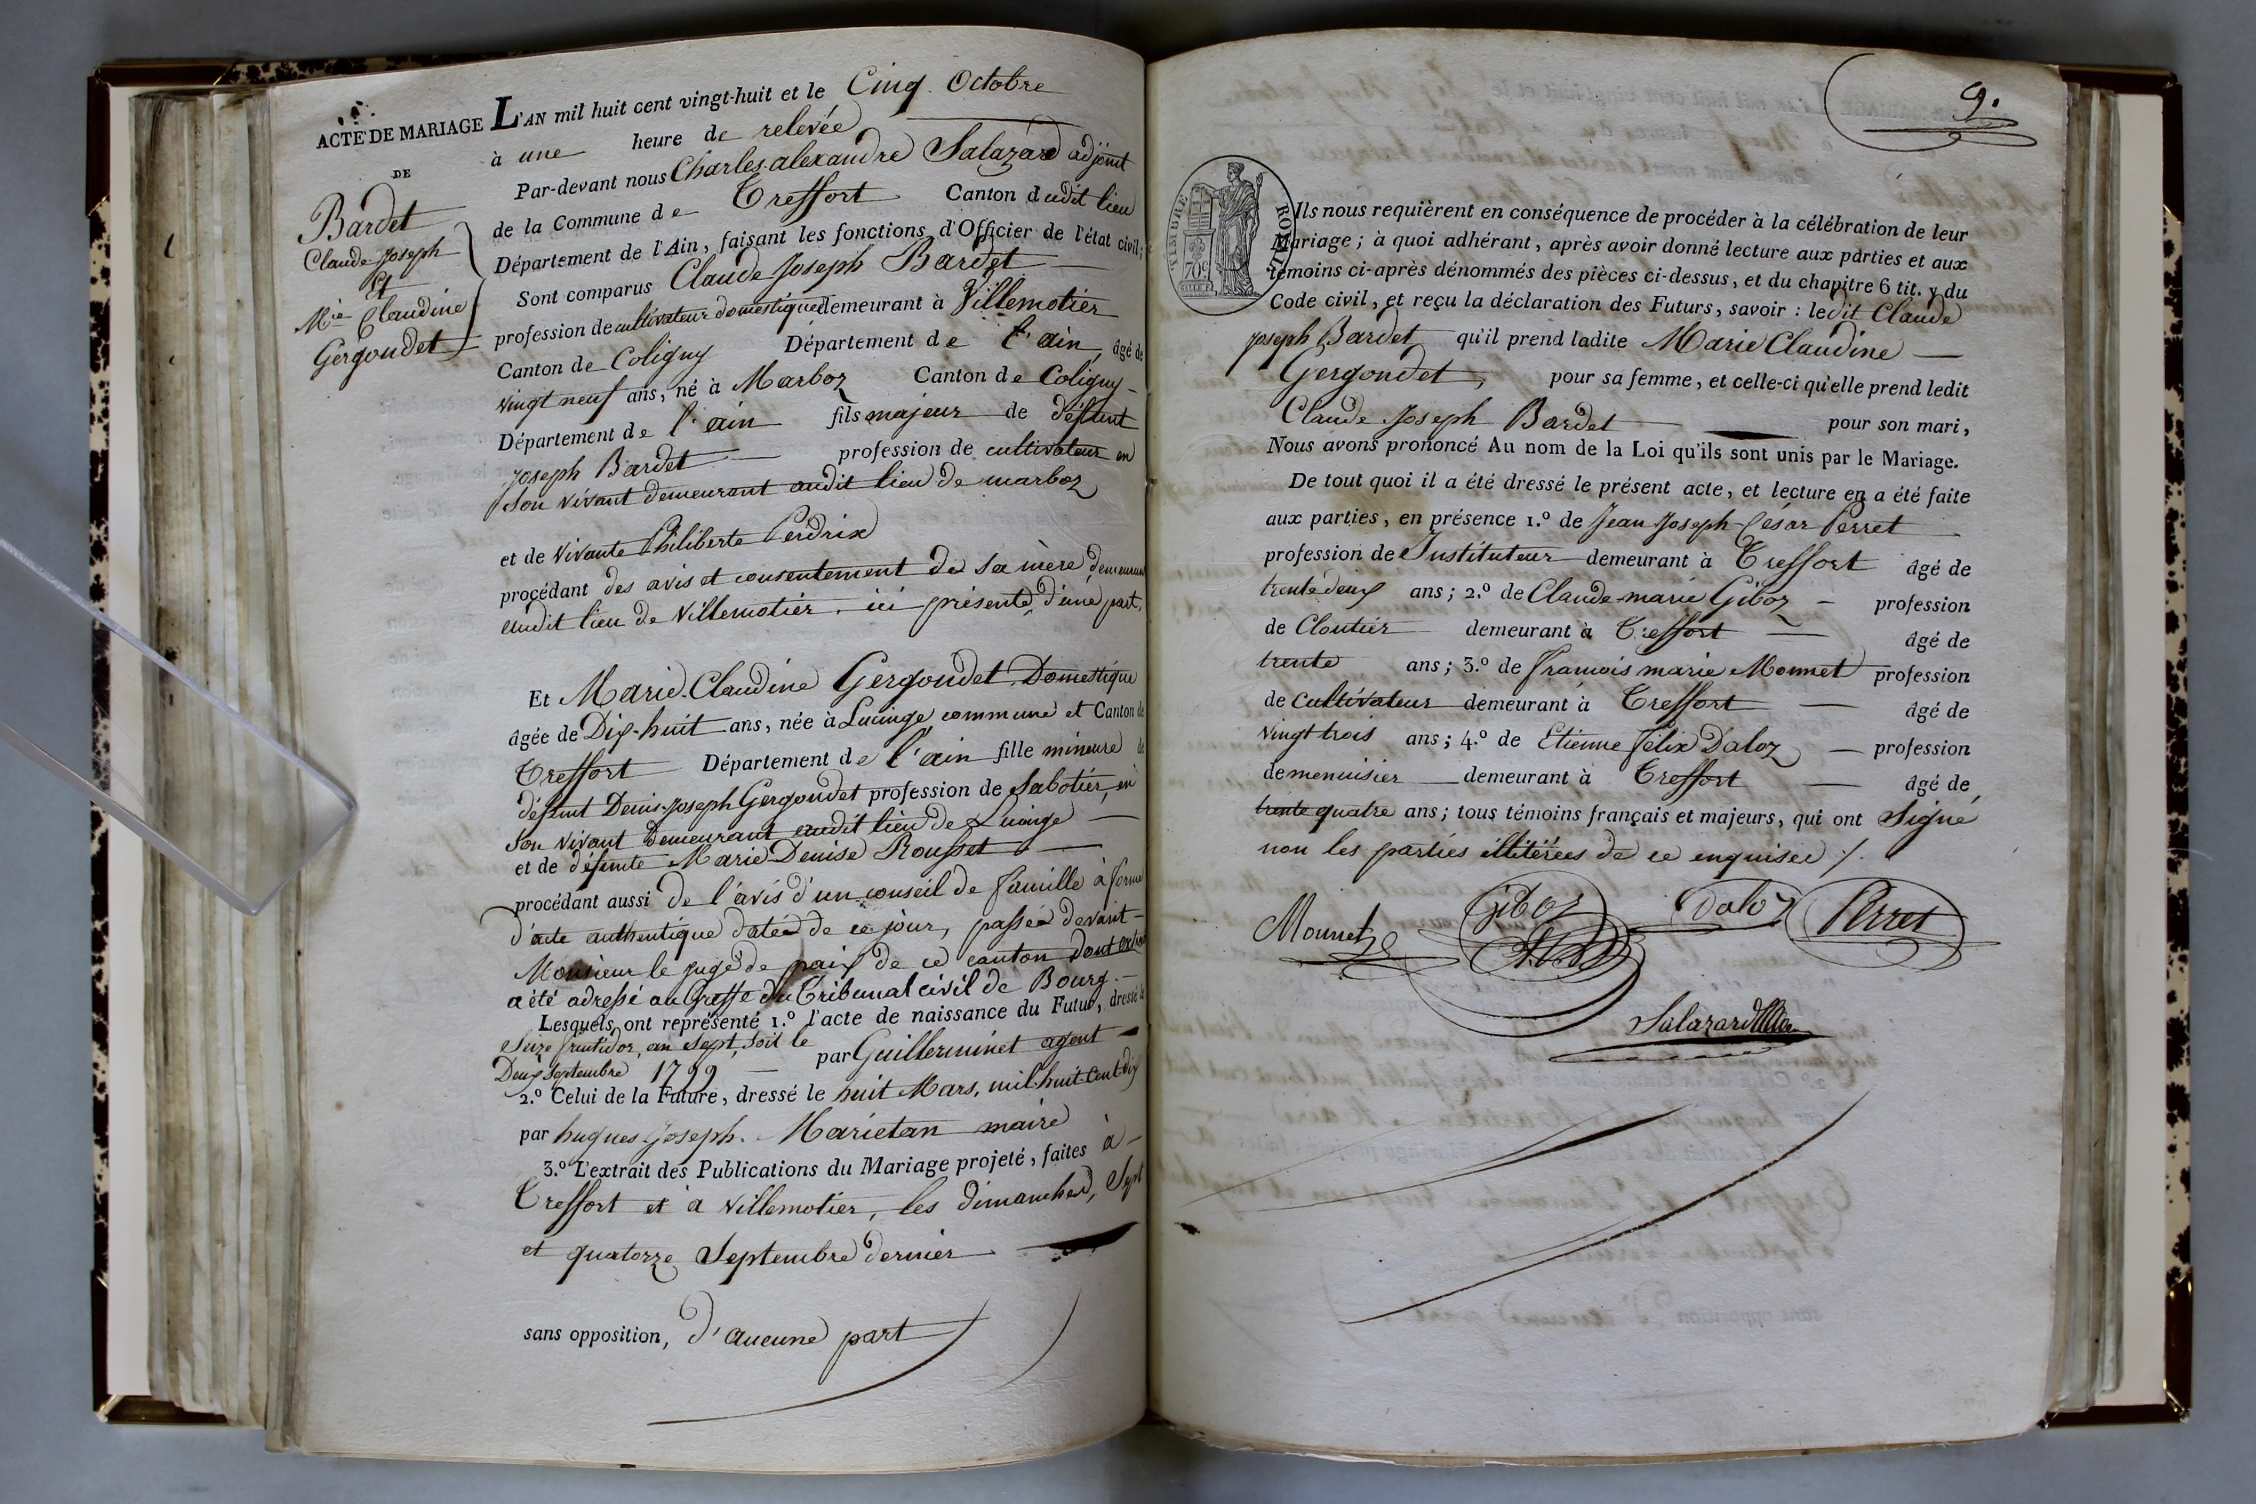 ACTE DE MARIAGE
DE
Bardet
Claude Joseph
Et
Mie Claudine
Gergondet
L'AN mil huit cent vingt-huit et le Cinq Octobre
à une heure de relevée
Par-devant nous Charles alexandre Salazard adjoint
de la Commune de Treffort Canton dudit lieu
Département de l'Ain, faisant les fonctions d'Officier de l'état civil;
Sont comparus Claude Joseph Bardet
profession de cultivateur domestique demeurant à Villemotier
Canton de Coligny Département de l'ain âgé de
vingt neuf ans, né à Marboz Canton de Coligny
Département de l'ain fils majeur de défunt
Joseph Bardet profession de cultivateur en
son vivant demeurant audit lieu de marboz
et de vivante Philiberte Perdrix
procédant des avis et consentement de sa mère demeurant
audit lieu de Villemotier ici présente, d'une part,
Et Marie Claudine Gergondet Domestique
âgée de Dix-huit ans, née à Lucinge commune et Canton de
Treffort Département de l'ain fille mineure de
défunt Denis-Joseph Gergondet profession de Sabotier, en
son vivant Demeurant audit lieu de Lucinge
et de défunte Marie Denise Rousset
procédant aussi de l'avis d'un conseil de famille à forme
d'acte authentique datée de ce jour, passée devant
Monsieur le juge de paix de ce canton dont extrait
a été adressé au Greffe du Tribunal civil de Bourg.
Lesquels ont représenté 1.º l'acte de naissance du Futur, dressé le
seize fructidor, an sept, soit le
Deux septembre 1799 par Guillerminet agent
2.º Celui de la Future, dressé le huit Mars, mil huit Cent dix
par hugues Joseph. Marietan maire
3.º L'extrait des Publications du Mariage projeté, faites à
Treffort et à Villemotier, les dimanches, Sept
et quatorze Septembre dernier
sans opposition, d'aucune part
9.
TIMBRE ROYAL
70c
Ils nous requièrent en conséquence de procéder à la célébration de leur
Mariage; à quoi adhérant, après avoir donné lecture aux parties et aux
témoins ci-après dénommés des pièces ci-dessus, et du chapitre 6 tit. v du
Code civil, et reçu la déclaration des Futurs, savoir: ledit Claude
joseph Bardet qu'il prend ladite Marie Claudine
Gergondet, pour sa femme, et celle-ci qu'elle prend ledit
Claude Joseph Bardet pour son mari,
Nous avons prononcé Au nom de la Loi qu'ils sont unis par le Mariage.
De tout quoi il a été dressé le présent acte, et lecture en a été faite
aux parties, en présence 1.º de Jean Joseph César Perret
profession de Instituteur demeurant à Treffort âgé de
trente deux ans; 2.º de Claude marie Giboz profession
de Cloutier demeurant à Treffort âgé de
trente ans; 3.º de francois marie Monnet profession
de cultivateur demeurant à Treffort âgé de
vingt trois ans; 4.º de Etienne félix Daloz profession
de menuisier demeurant à Treffort âgé de
trente quatre ans; tous témoins français et majeurs, qui ont Signé
non les parties illitérées de ce enquises ./.
Monnet
Giboz
Daloz
Perret
Salazard